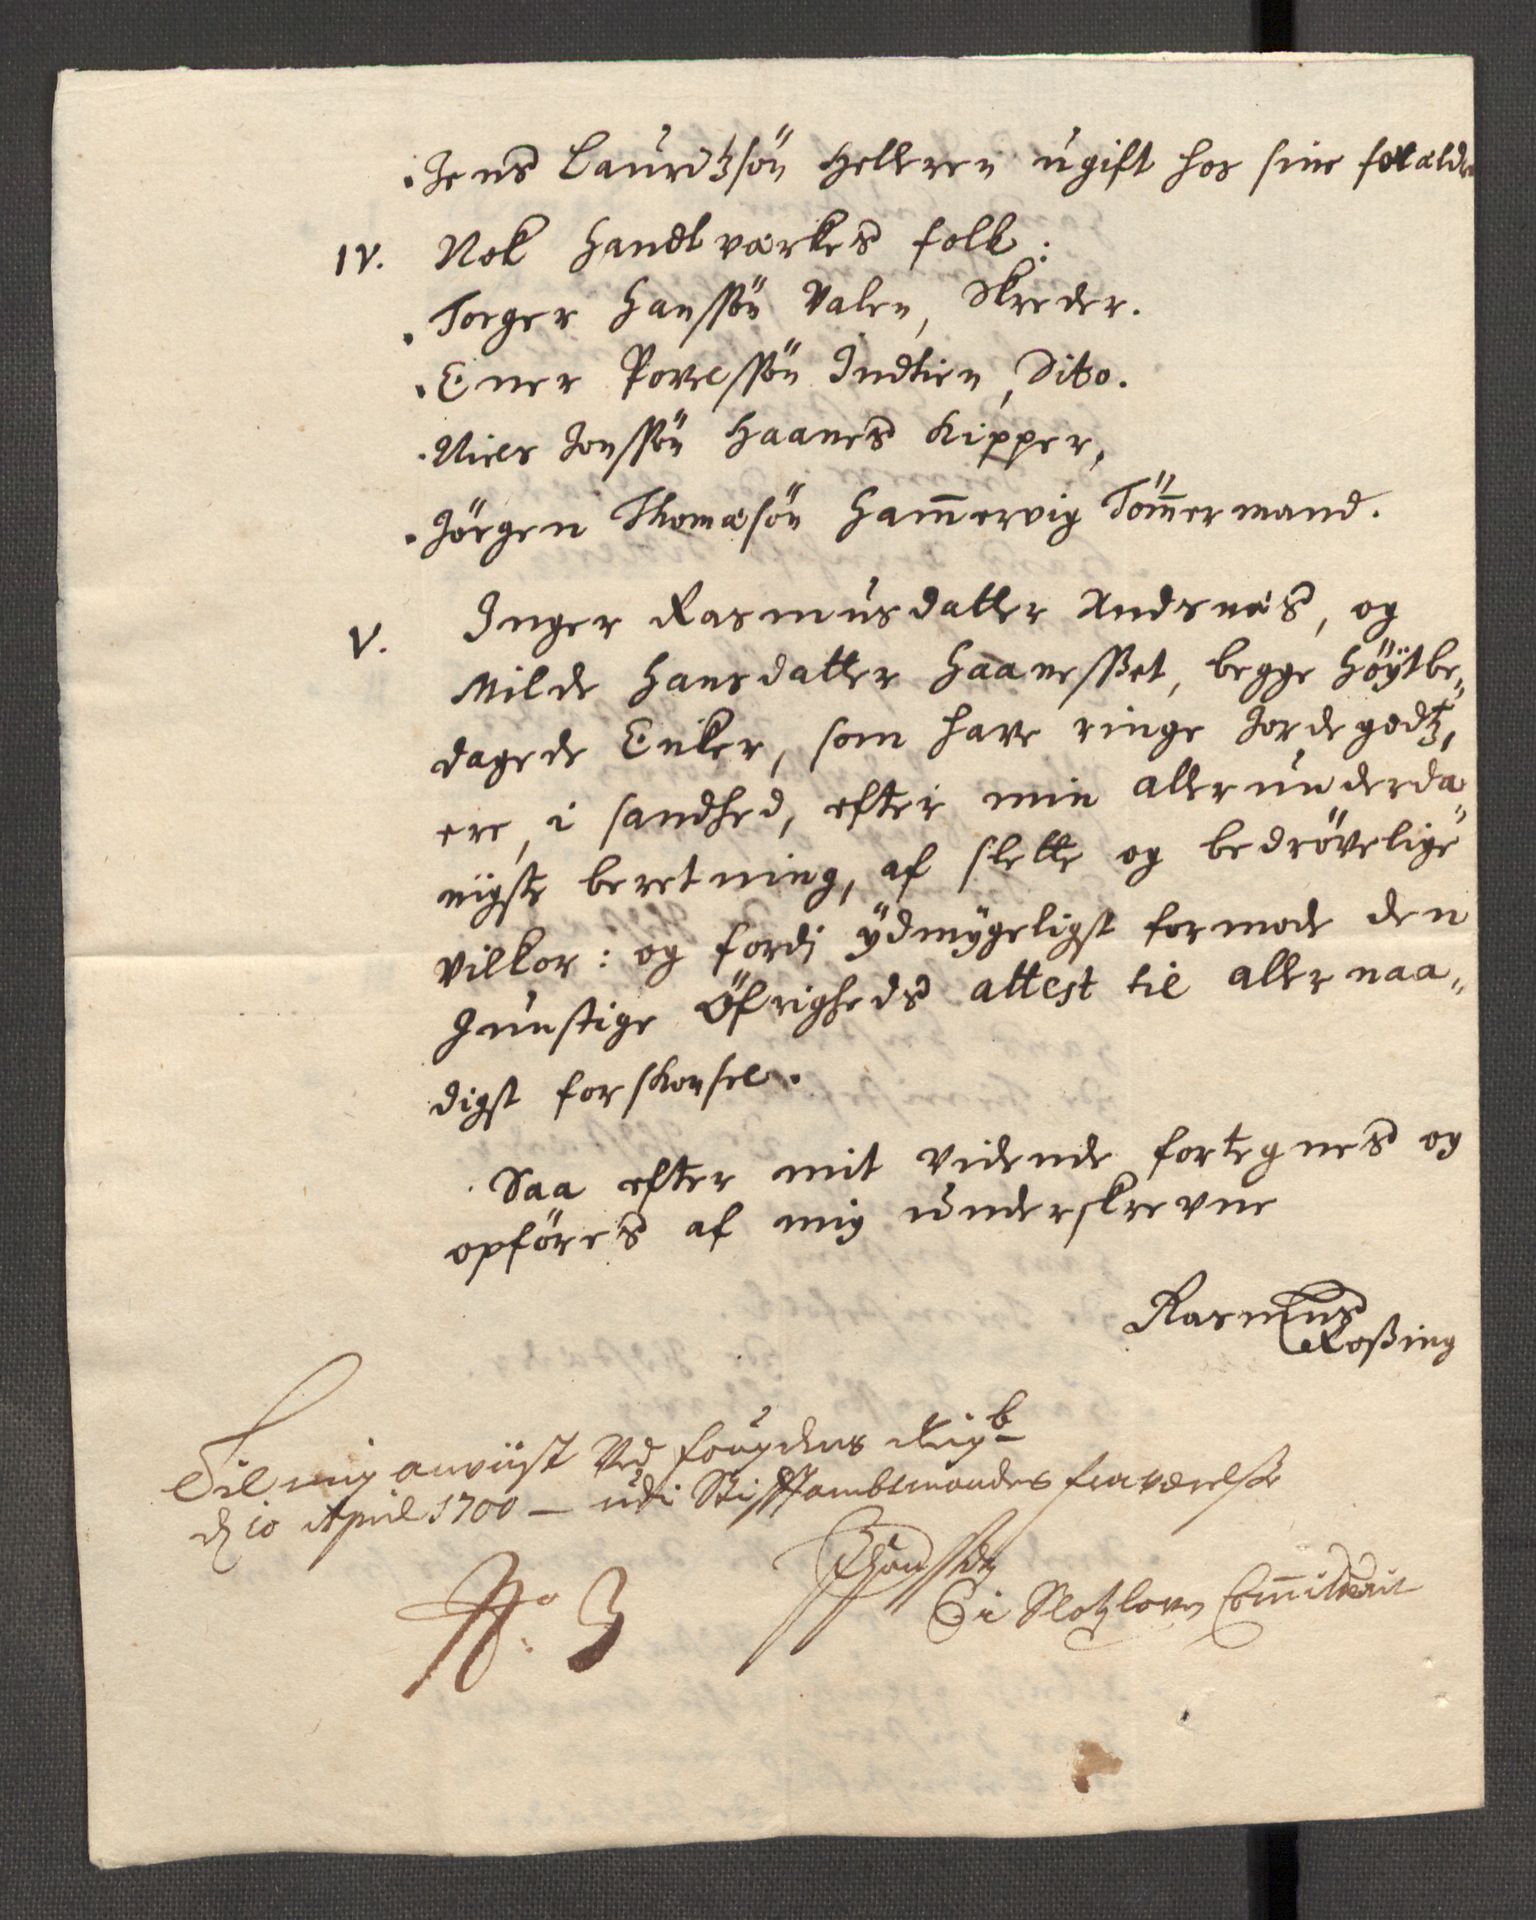 Jens Lauridtzsön Helleren ugift hos sine forældre
IV. Nok Handtværkes folk:
Torger Hanssön Valen, Skreder.
Ener Povelssön Indtien, Dito.
Niels Jonssön Haanes Kipper,
Jörgen Thomæsön Ham̄ervig Töm̄ermand.
V. Inger Rasmusdatter Andsnæs, og
Milde Hansdatter Haanesset, begge höÿtbe„
dagede Enker, som have ringe Jordegodtz,
ere, i sandhed, efter min allerunderda„
nigste beretning, af slette og bedrövelige
vilkor: og fordi ÿdmygeligst formode den
gunstige Öfrigheds attest til allernaa„
digst forskonsel.
Saa efter mit vidende fortegnes og
opföres af mig underskrevne
Rasmus
Roßing
Til mig anviist Ved fougdens
d 10 April 1700 – udi Stifftambtmandes fraværelße
Slotzloven Com̄itterit
No. 3